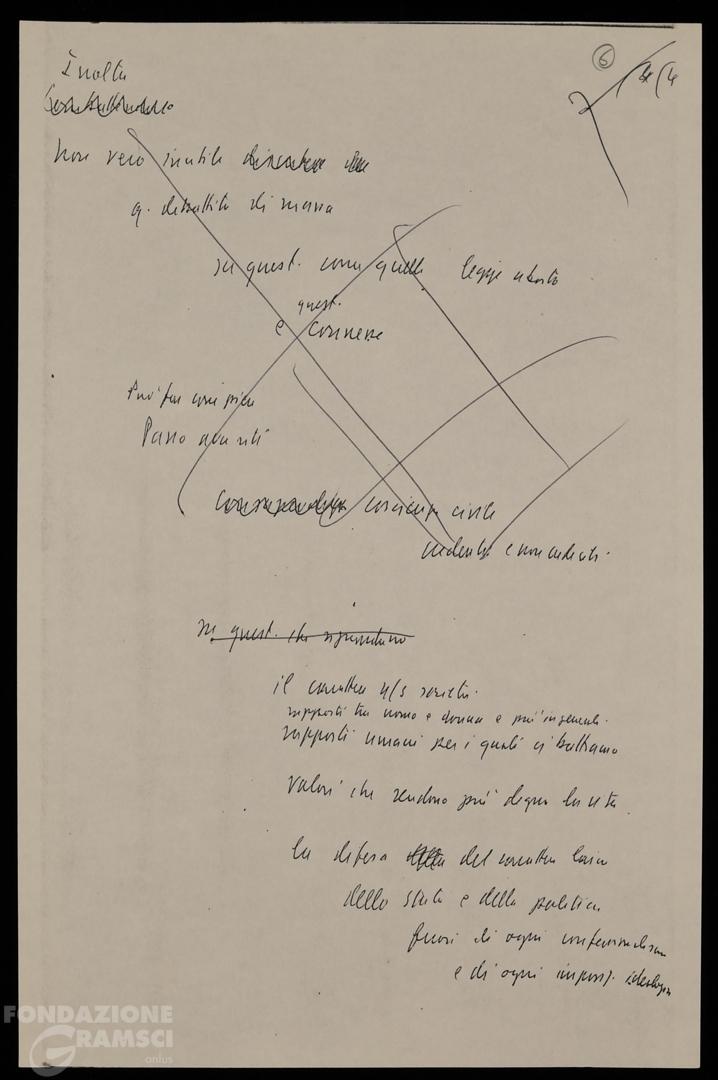 6
Inoltre
non vero inutile
q. dibattito di massa
su quest. come quelle legge aborto
quest.
e connesse
Può far
Passo avanti
coscienza civile
credenti e non credenti.
su quest. che riguardano
il carattere n/s società.
rapporti tra uomo e donna e più in general.
rapporti umani per i quali ci battiamo
valori che rendono più degna la vita
la difesa del carattere laico
dello stato e della politica
fuori di ogni confessionalismo
e di ogni impos. ideologica
FONDAZIONE
GRAMSCI
onlus